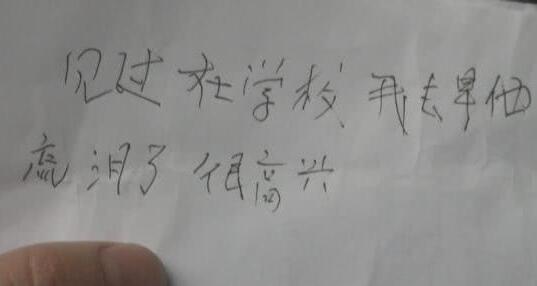 见过 在学校 我去早他
流泪了 很高兴